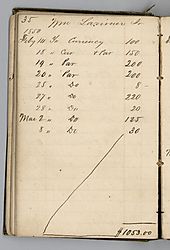 35 Wm Larimer Jr
1850
Feby 14 To Currency 100
18 " Cur & Par 150
19 " Par 200
20 " Par 200
25 " Do 8 -
27 " Do 220
28 " Do 20
Mar 2 " Do 125
8 " Do 30
$1053.00